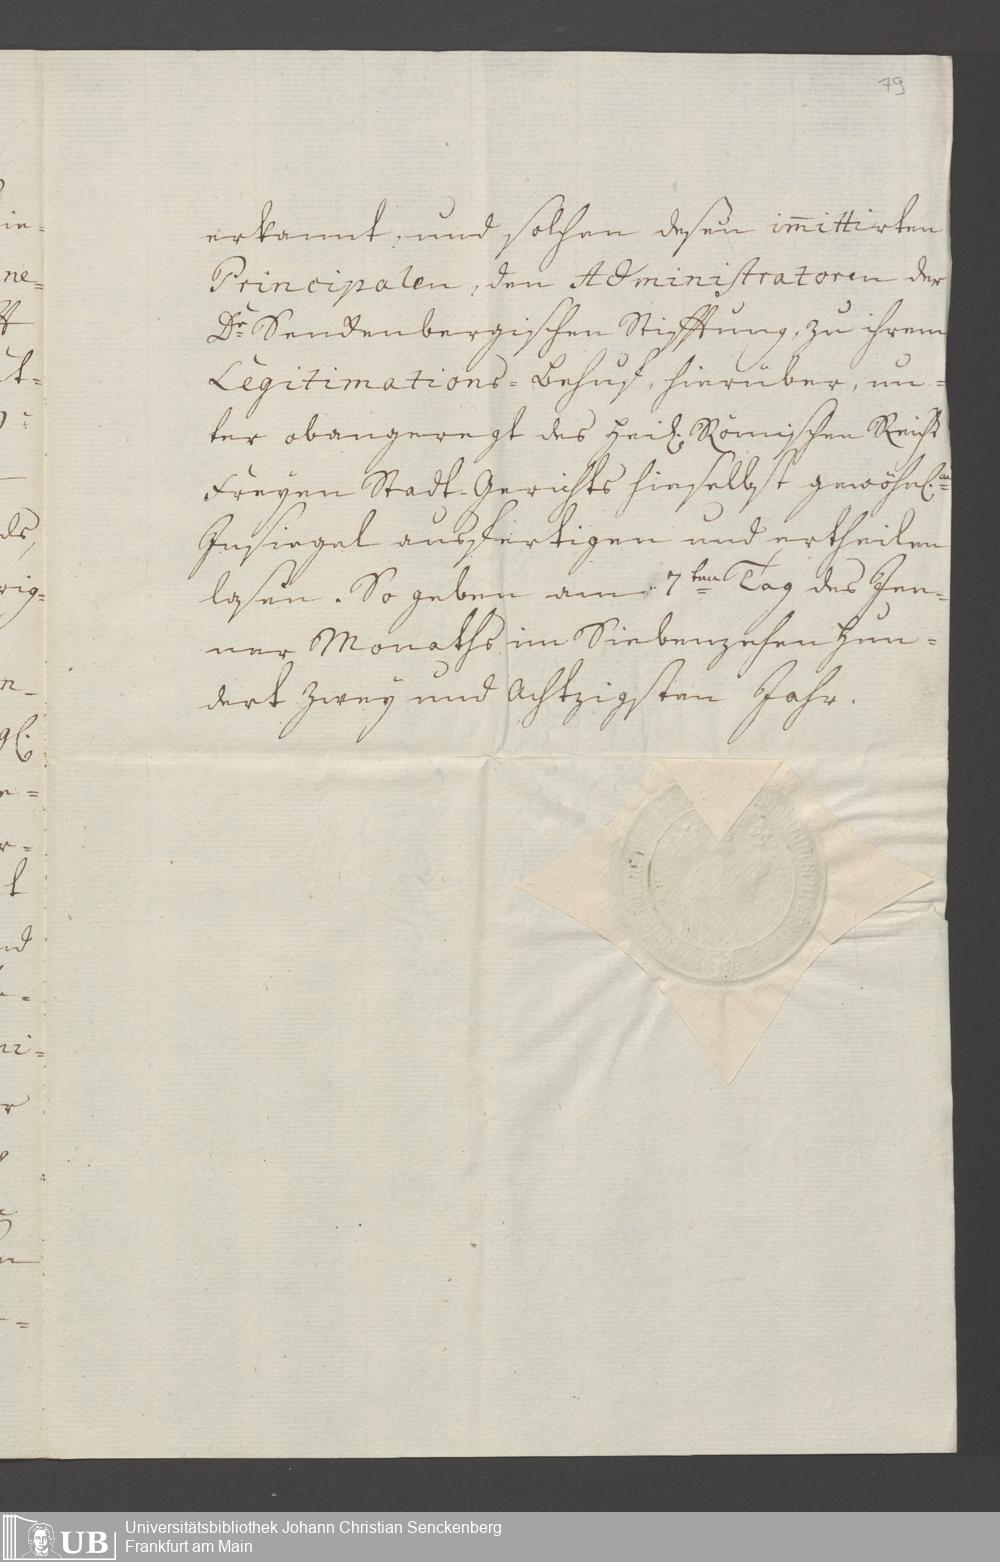 79
erkannt, und solchen deßen im̅ittirten
Principalen, den Administratoren der
Dr. Senckenbergischen Stifftung, zu ihrem
Legitimations-Behuf, hierüber, un=
ter obangeregt des Heil. Römischen Reichs
Freyen Stadt-Gerichts hieselbst gewöhnl.en
Insiegel ausfertigen und ertheilen
laßen. So geben am 7ten Tag des Jen=
ner Monaths im Siebenzehen Hun=
dert Zwey und Achtzigsten Jahr.
UB
Universitätsbibliothek Johann Christian Senckenberg
Frankfurt am Main